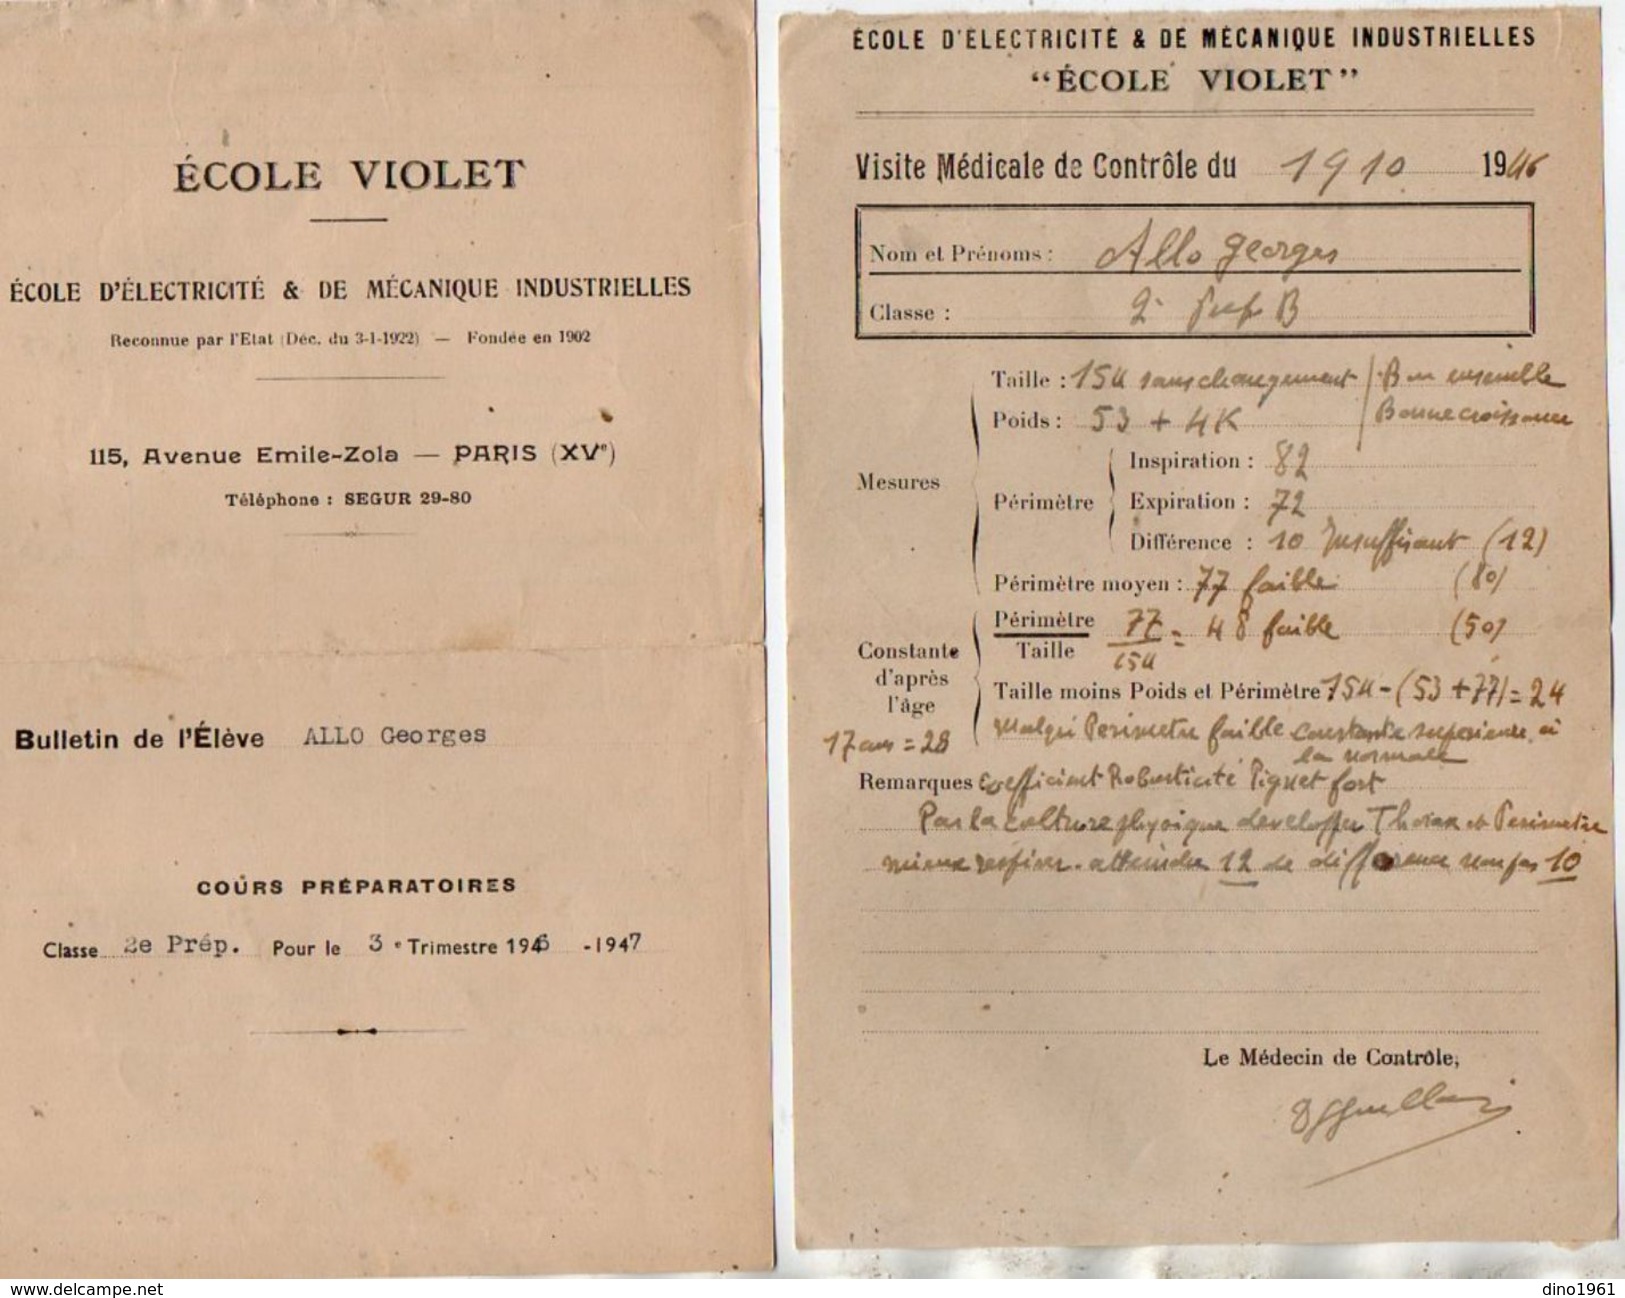 ÉCOLE VIOLET
ÉCOLE D'ÉLECTRICITÉ & DE MÉCANIQUE INDUSTRIELLES
Reconnue par l'Etat (Déc. du 3-1-1922) — Fondée en 1902
115, Avenue Emile-Zola — PARIS (XVe)
Téléphone : SEGUR 29-80
Bulletin de l'Élève ALLO Georges
COURS PRÉPARATOIRES
Classe 2e Prép. Pour le 3e Trimestre 1946-1947
ÉCOLE D'ÉLECTRICITÉ & DE MÉCANIQUE INDUSTRIELLES
"ÉCOLE VIOLET"
Visite Médicale de Contrôle du 19 10 1946
Nom et Prénoms : Allo Georges
Classe : 2e Prep B
Taille : 154 sans changement / Bon ensemble
Poids : 53 + 4K Bonne croissance
Mesures
Inspiration : 82
Périmètre Expiration : 72
Différence : 10 Insuffisant (12)
Périmètre moyen : 77 faible (80)
Constante d'après l'âge
17 ans = 28
Périmètre
Taille
77
154
= 48 faible (50)
Taille moins Poids et Périmètre 154 - (53 + 77) = 24
Malgré Perimetre faible constante superieure à
la normale
Remarques Coefficient Robusticité Piquet fort
Par la culture physique developper Thorax et Perimetre
mieux respirer. atteindre 12 de difference non pas 10
Le Médecin de Contrôle,
dino1961